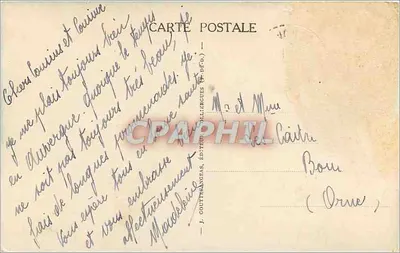 CARTE POSTALE
Chers Cousins et Cousine
Je me plais toujours bien
en Auvergne quoique le temps
ne soit pas toujours très beau, je
fais de longues promenades. Je
vous espère tous en bonne santé
et vous embrasse
affectueusement
Madeleine
Mr et Mme
Le
Bom
(Orne)
CPAPHIL